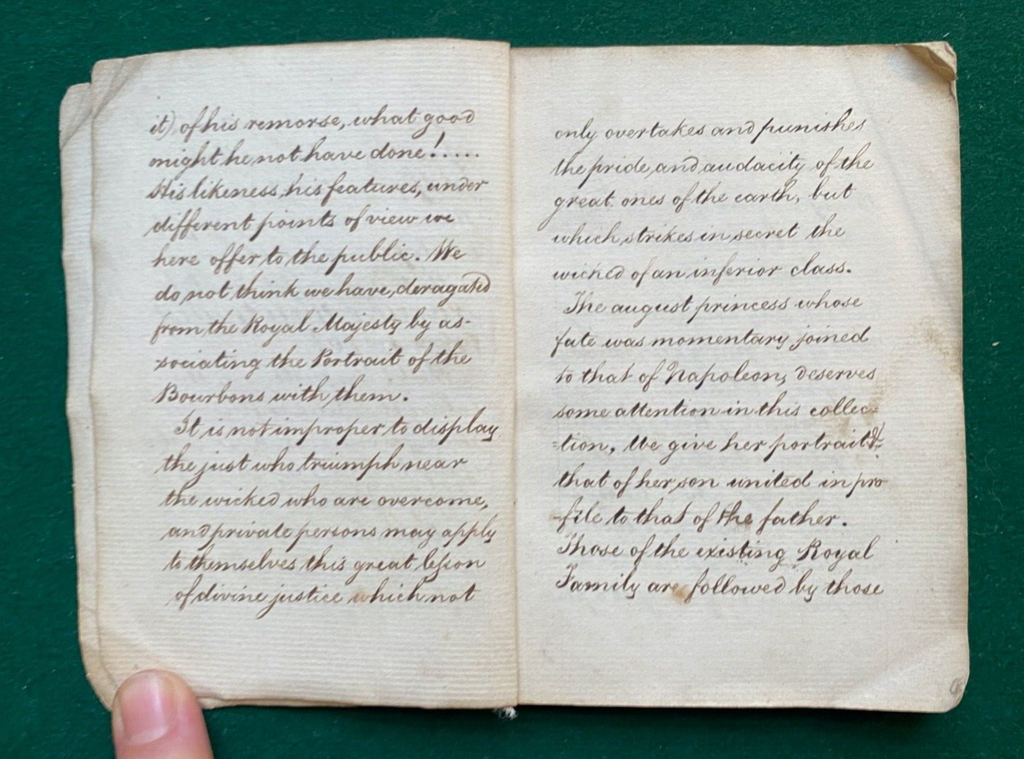 it) of his remorse, what good
might he not have done!.....
His likeness, his features, under
different points of view we
here offer to the public. We
do not think we have, deragated
from the Royal Majesty by as-
sociating the Portrait of the
Bourbons with them.
It is not improper to display
the just who triumph near
the wicked who are overcome,
and private persons may apply
to themselves this great leſson
of divine justice which not
only overtakes and punishes
the pride, and audacity of the
great ones of the earth, but
which strikes in secret the
wicked of an inferior class.
The august princess whose
fate was momentary joined
to that of Napoleon, deserves
some attention in this collec-
-tion, We give her portrait &
that of her son united in pro
-file to that of the father.
Those of the existing Royal
Family are followed by those